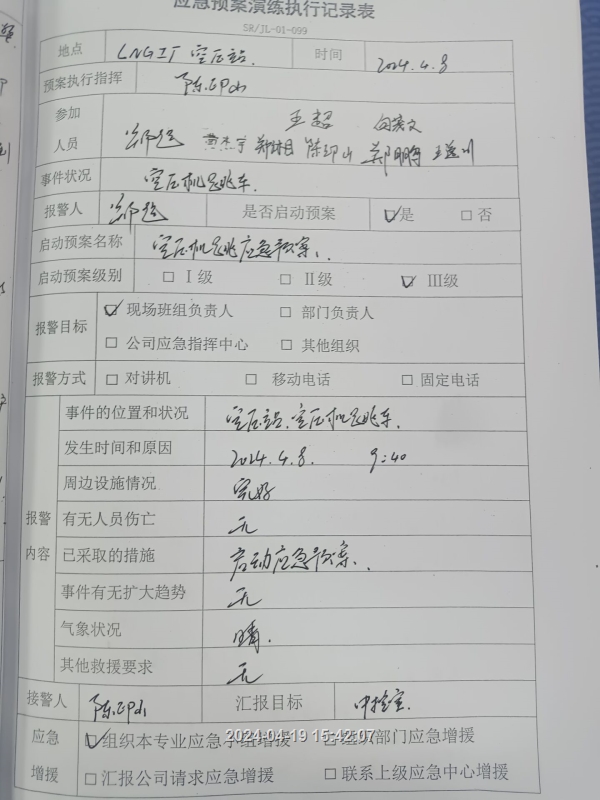 应急预案演练执行记录表
SR/JL-01-099
地点 LNG工厂 空压站. 时间 2024.4.8
预案执行指挥 陈印山
参加 王超
人员 陈印山 郑鹏
事件状况 空压机跳车.
报警人 是否启动预案 ☑是 □否
启动预案名称 空压机跳车应急预案.
启动预案级别 □Ⅰ级 □Ⅱ级 ☑Ⅲ级
报警目标 ☑现场班组负责人 □部门负责人
□公司应急指挥中心 □其他组织
报警方式 □对讲机 □移动电话 □固定电话
事件的位置和状况 空压站.空压机跳车.
发生时间和原因 2024.4.8. 9:40
周边设施情况 完好
报警 有无人员伤亡 无
内容 已采取的措施 启动应急预案.
事件有无扩大趋势 无
气象状况 晴.
其他救援要求 无
接警人 陈印山 汇报目标 中控室.
应急 ☑组织本专业应急小组增援 □组织部门应急增援
2024-04-19 15:42:07
增援 □汇报公司请求应急增援 □联系上级应急中心增援